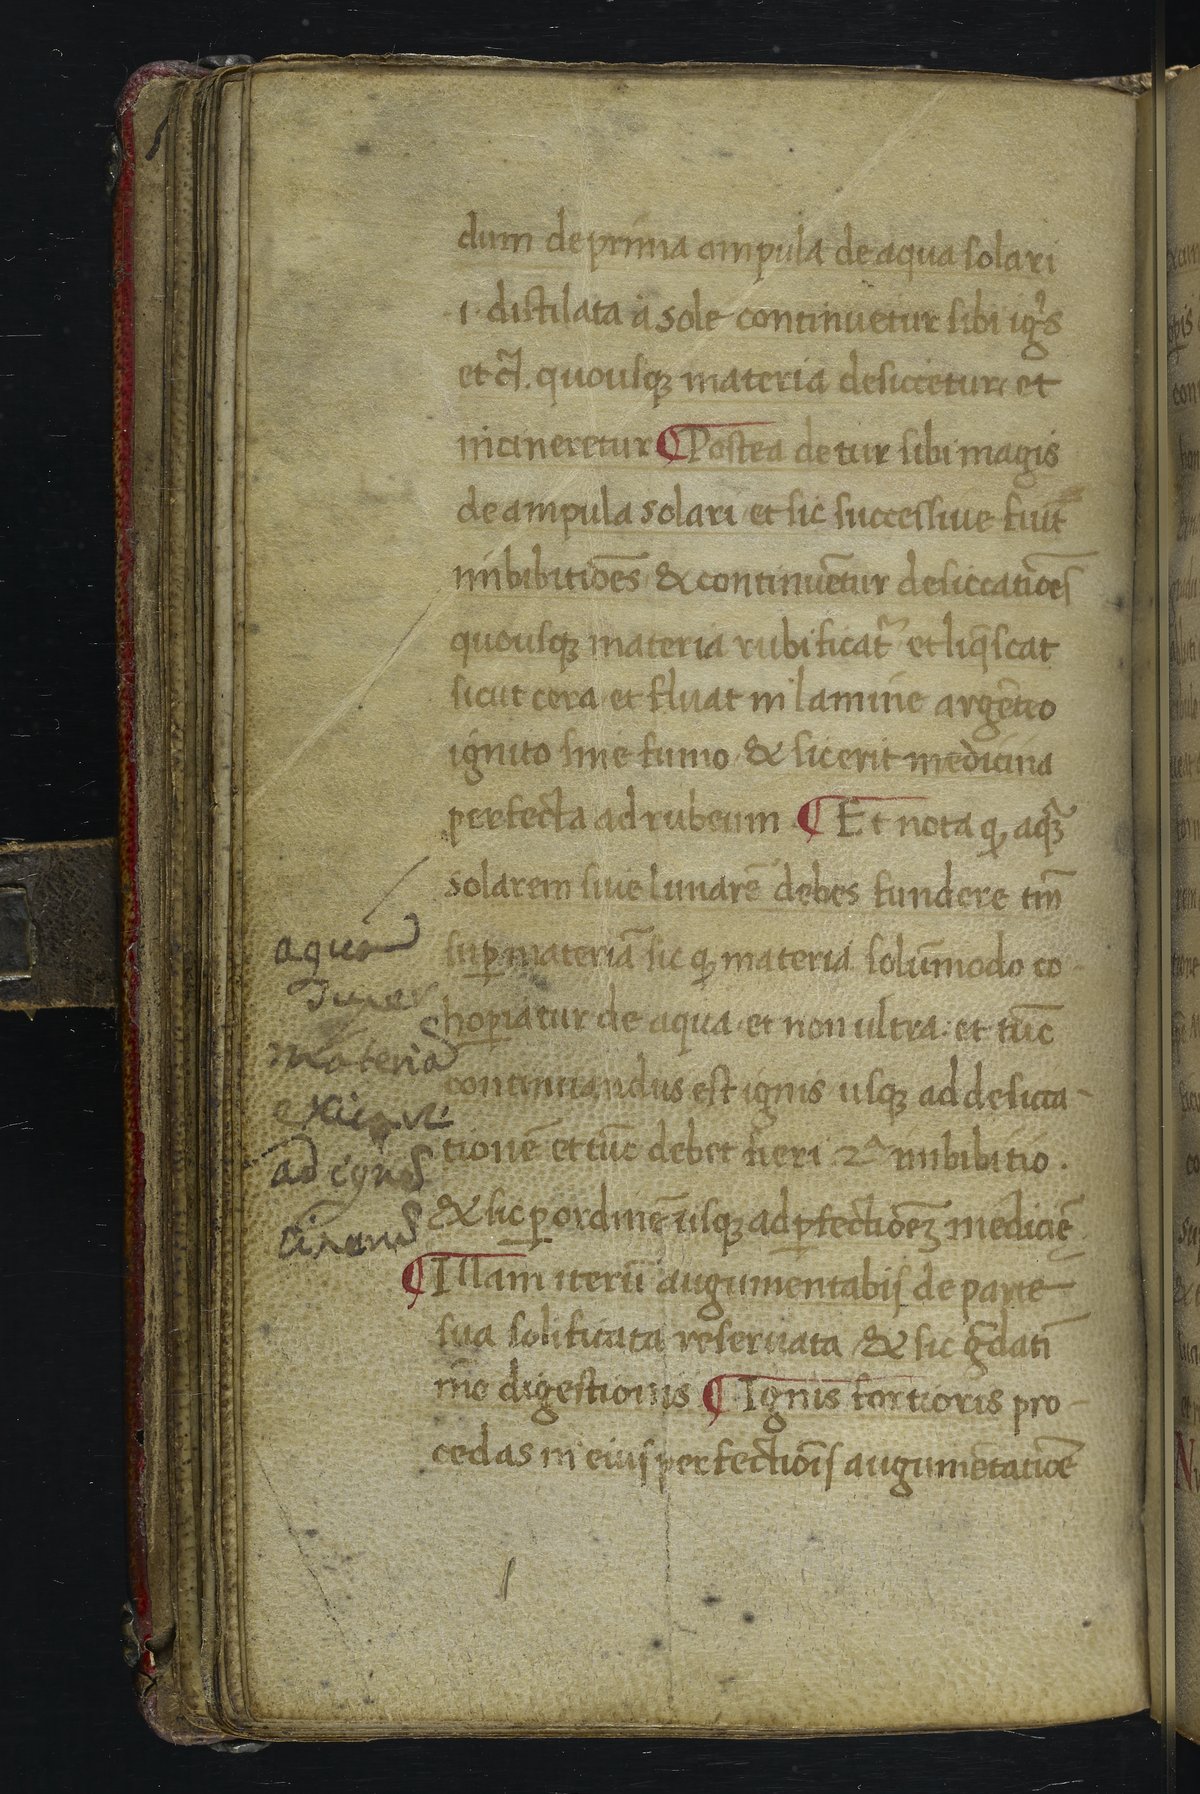 dum de prima ampula de aqua solari
.1. distilata a sole continuetur sibi ig̃s
et c̃l. quousqꝫ materia desiccetur et
incineretur ¶ Postea detur sibi magis
de ampula solari et sic successiue fuit̃
imbibitiōes & continuētur desiccatiōes
quousqꝫ materia rubificat᷑ et liq̄scat
sicut cera et fluat in lamine argēteo
ignito sine fumo & sic erit medicina
perfecta ad rubeum ¶ Et nota ꝙ aquā
solarem siue lunarē debes fundere tm̄
suꝑ materiā sic ꝙ materia solūmodo co-
hoꝑiatur de aqua et non ultra. et tūc
continuandus est ignis usqꝫ ad desicca-
tionē et tūc debet fieri 2ᵃ imbibitio.
& sic ꝑ ordinē usqꝫ ad ꝑfectiōeꝫ mediciē
¶ Illam iterū augumentabis de parte
sua solificata reseruata & sic g̃datī
mō digestionis ¶ Ignis fortioris pro-
cedas in eius perfectiōis augumētatiōe
aqua
materia
ad igne